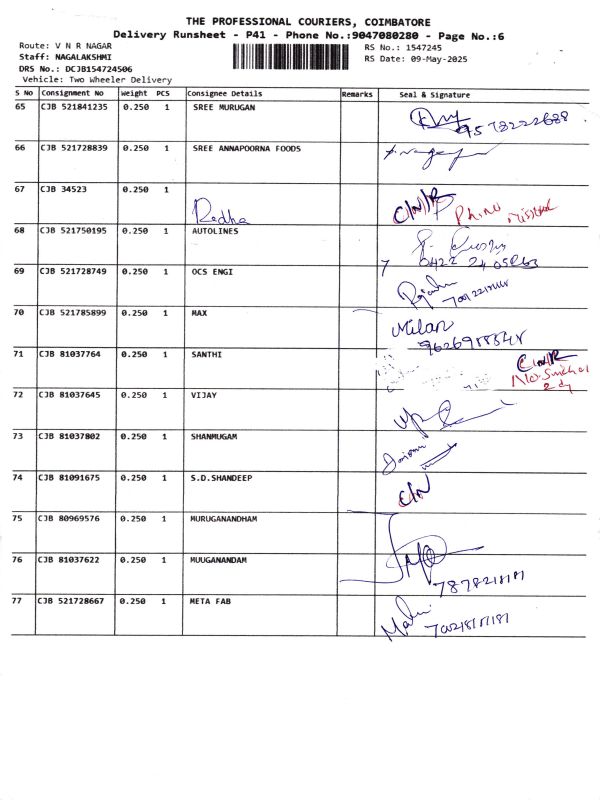 THE PROFESSIONAL COURIERS, COIMBATORE
Delivery Runsheet - P41 - Phone No.:9047080280 - Page No.:6
Route: V N R NAGAR
RS No.: 1547245
Staff: NAGALAKSHMI
RS Date: 09-May-2025
DRS No.: DCJB154724506
Vehicle: Two Wheeler Delivery
S No Consignment No Weight PCS Consignee Details Remarks Seal & Signature
65 CJB 521841235 0.250 1 SREE MURUGAN
66 CJB 521728839 0.250 1 SREE ANNAPOORNA FOODS
67 CJB 34523 0.250 1
Radha
C/N/R
68 CJB 521750195 0.250 1 AUTOLINES
69 CJB 521728749 0.250 1 OCS ENGI
70 CJB 521785899 0.250 1 MAX
Milan
71 CJB 81037764 0.250 1 SANTHI
72 CJB 81037645 0.250 1 VIJAY
73 CJB 81037802 0.250 1 SHANMUGAM
74 CJB 81091675 0.250 1 S.D.SHANDEEP
C/N
75 CJB 80969576 0.250 1 MURUGANANDHAM
76 CJB 81037622 0.250 1 MUUGANANDAM
77 CJB 521728667 0.250 1 META FAB